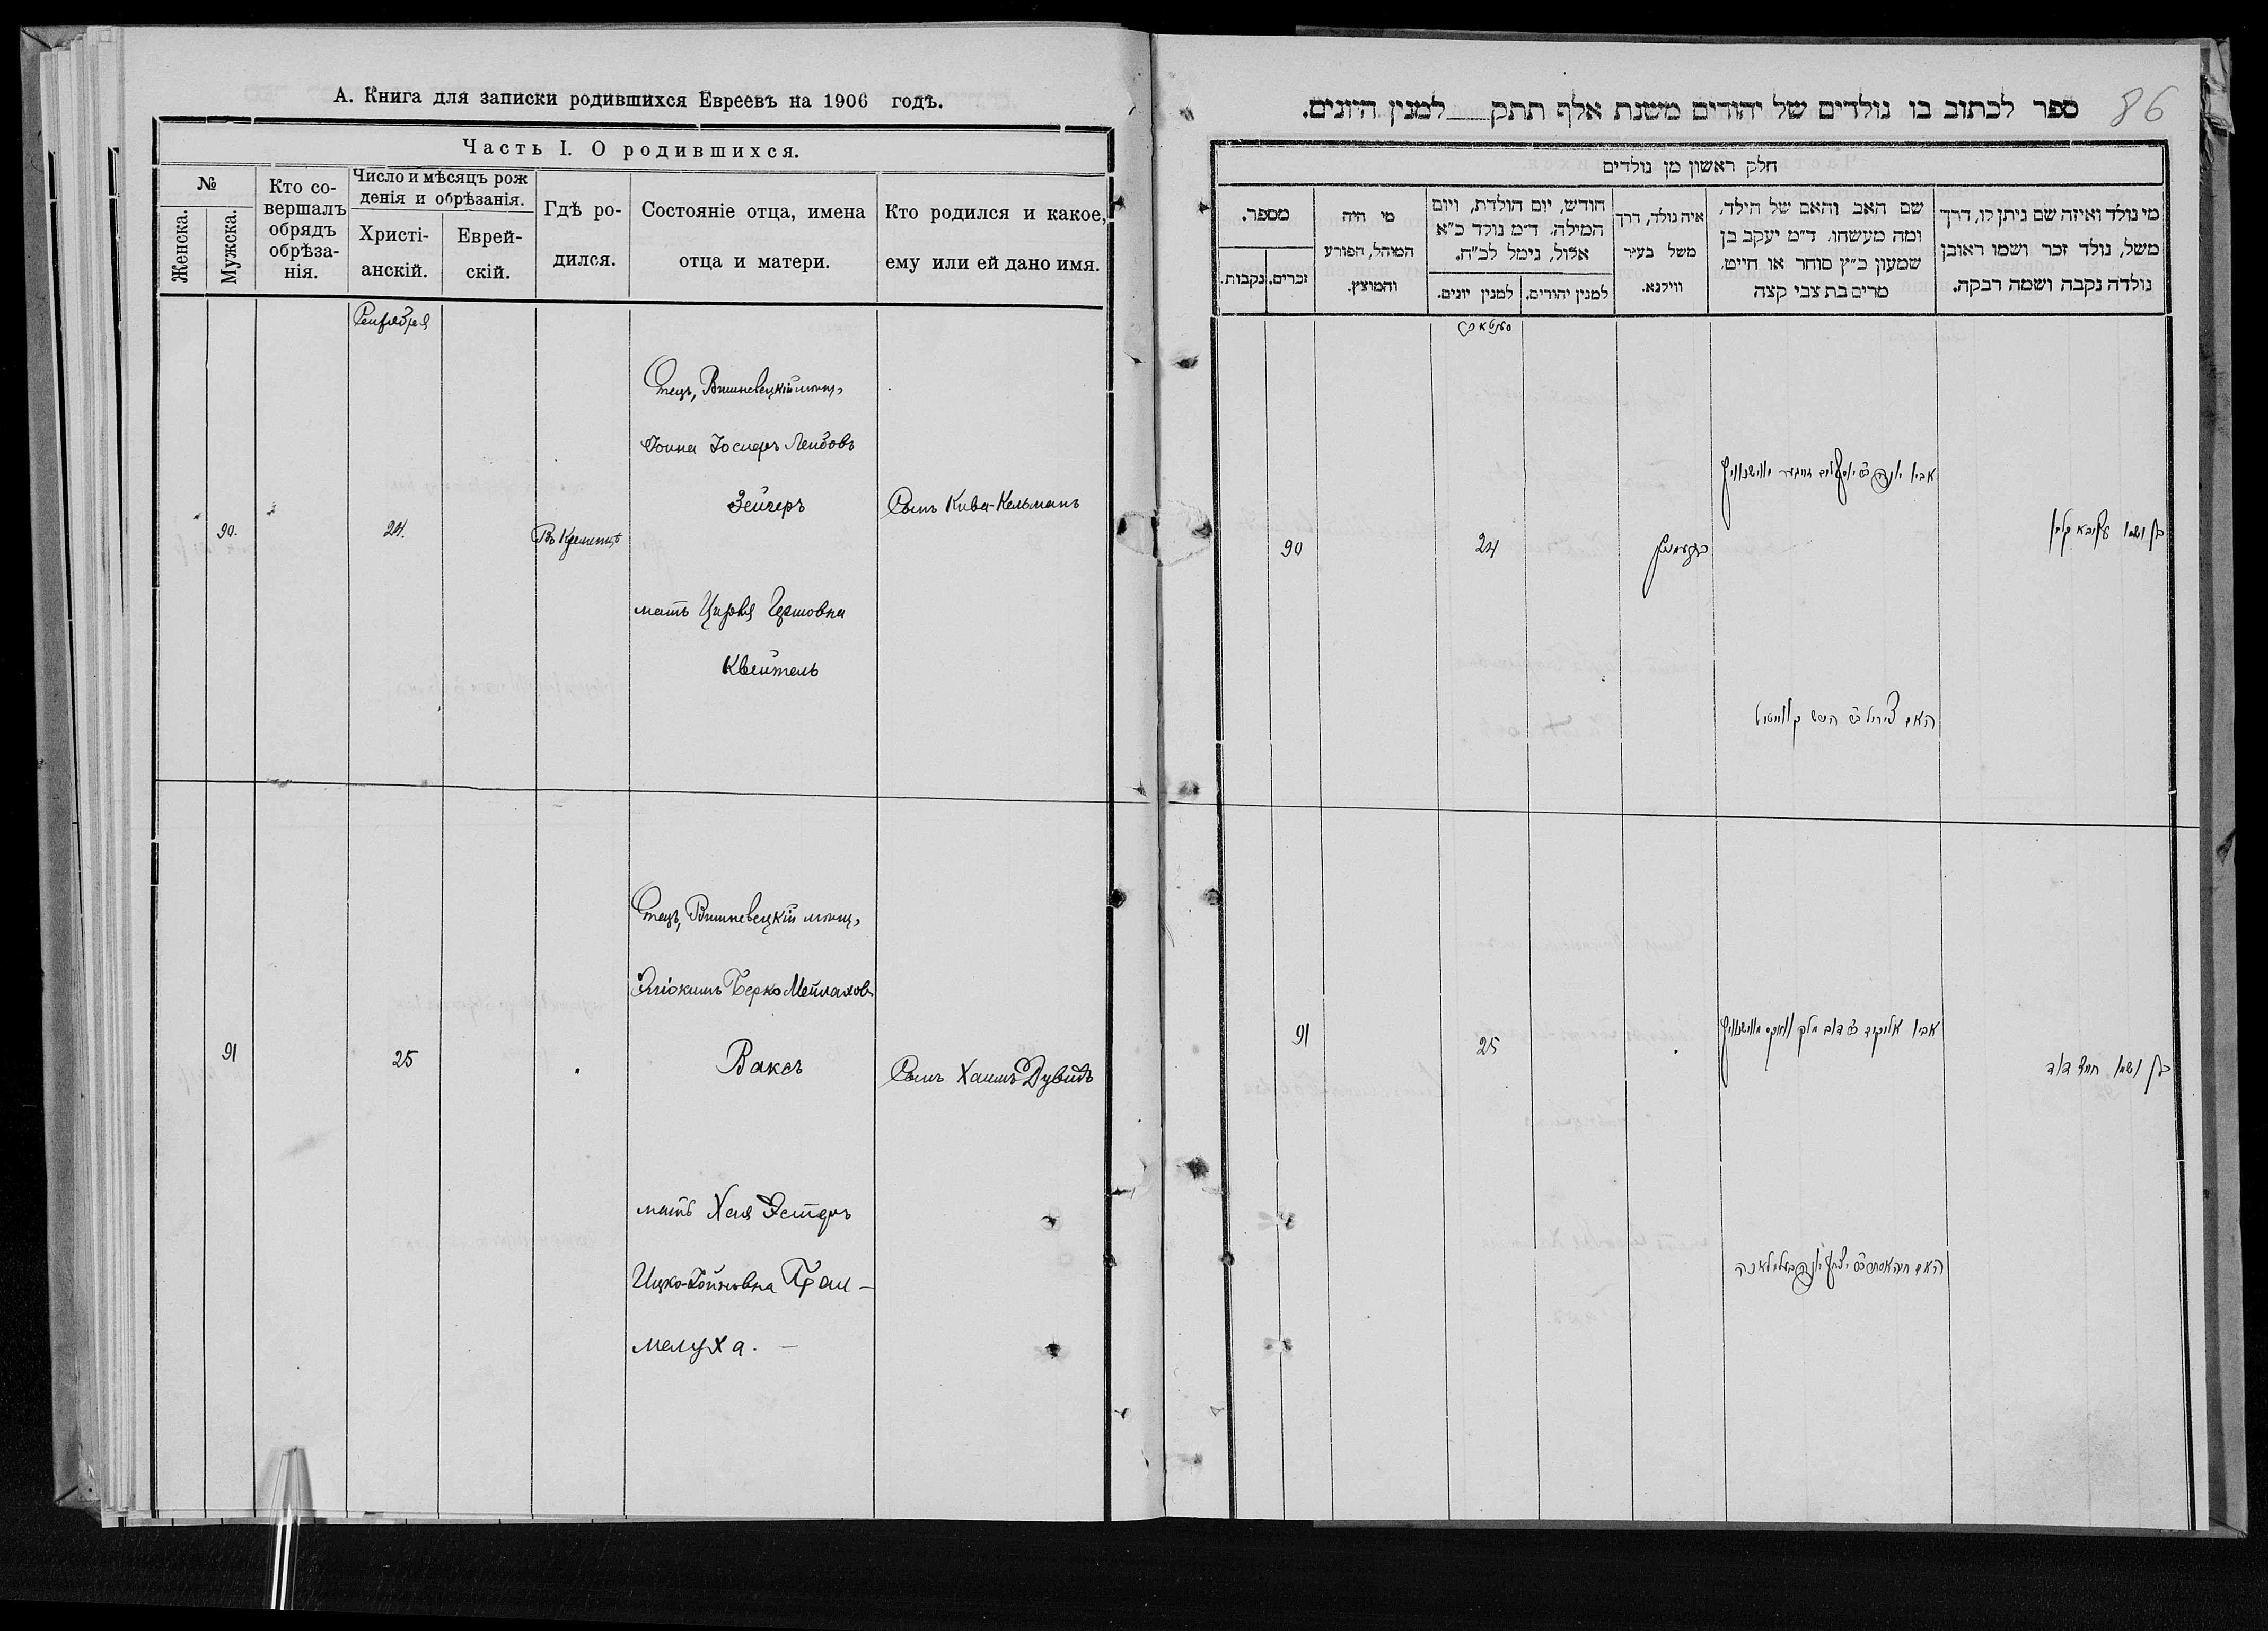 А. Книга для записки родившихся Евреевъ на 1906 годъ.
Часть I. О родившихся.
№
Женска.
Мужска.
Кто со-
вершалъ
обрядъ
обрѣза-
нія.
Число и мѣсяцъ рож
денія и обрѣзанія.
Христі-
анскій.
Еврей-
скій.
Гдѣ ро-
дился.
Состояніе отца, имена
отца и матери.
Кто родился и какое,
ему или ей дано имя.
Сентября
90.
24.
Въ Кременцѣ
Отецъ, Вишневецкій мѣщ.
Іойна Іосифъ Лейбовъ
Зейгеръ
мать Цирля Гершовна
Квейтель
Сынъ Кива-Кельманъ
91
25
Отецъ, Вишневецкій мѣщ.
Эліокимъ Берко Мейлахов
Ваксъ
мать Хая Эстеръ
Ицко-Іойновна
Сынъ Хаимъ Дувидъ
86
ספר לכתוב בו נולדים של יהודים משנת אלף תתק למנין היונים.
חלק ראשון מן נולדים
מספר.
זכרים.
נקבות.
מי היה
המוהל, הפורע
והמוצץ.
חודש, יום הולדת, ויום
המילה. ד״מ נולד כ״א
אלול, נימל לכ״ח.
למנין יונים.
למנין יהודים.
איה נולד, דרך
משל בעיר
ווילנא.
שם האב והאם של הילד,
ומה מעשהו. ד״מ יעקב בן
שמעון כ״ץ סוחר או חייט.
מרים בת צבי קצה
מי נולד ואיזה שם ניתן לו, דרך
משל, נולד זכר ושמו ראובן
נולדה נקבה ושמה רבקה.
90
24
אביו יונה
האם צירל
בן ושמו עקיבא קלמן
91
25
אביו אליקים
האם חיה אסתר
בן ושמו חיים דוד